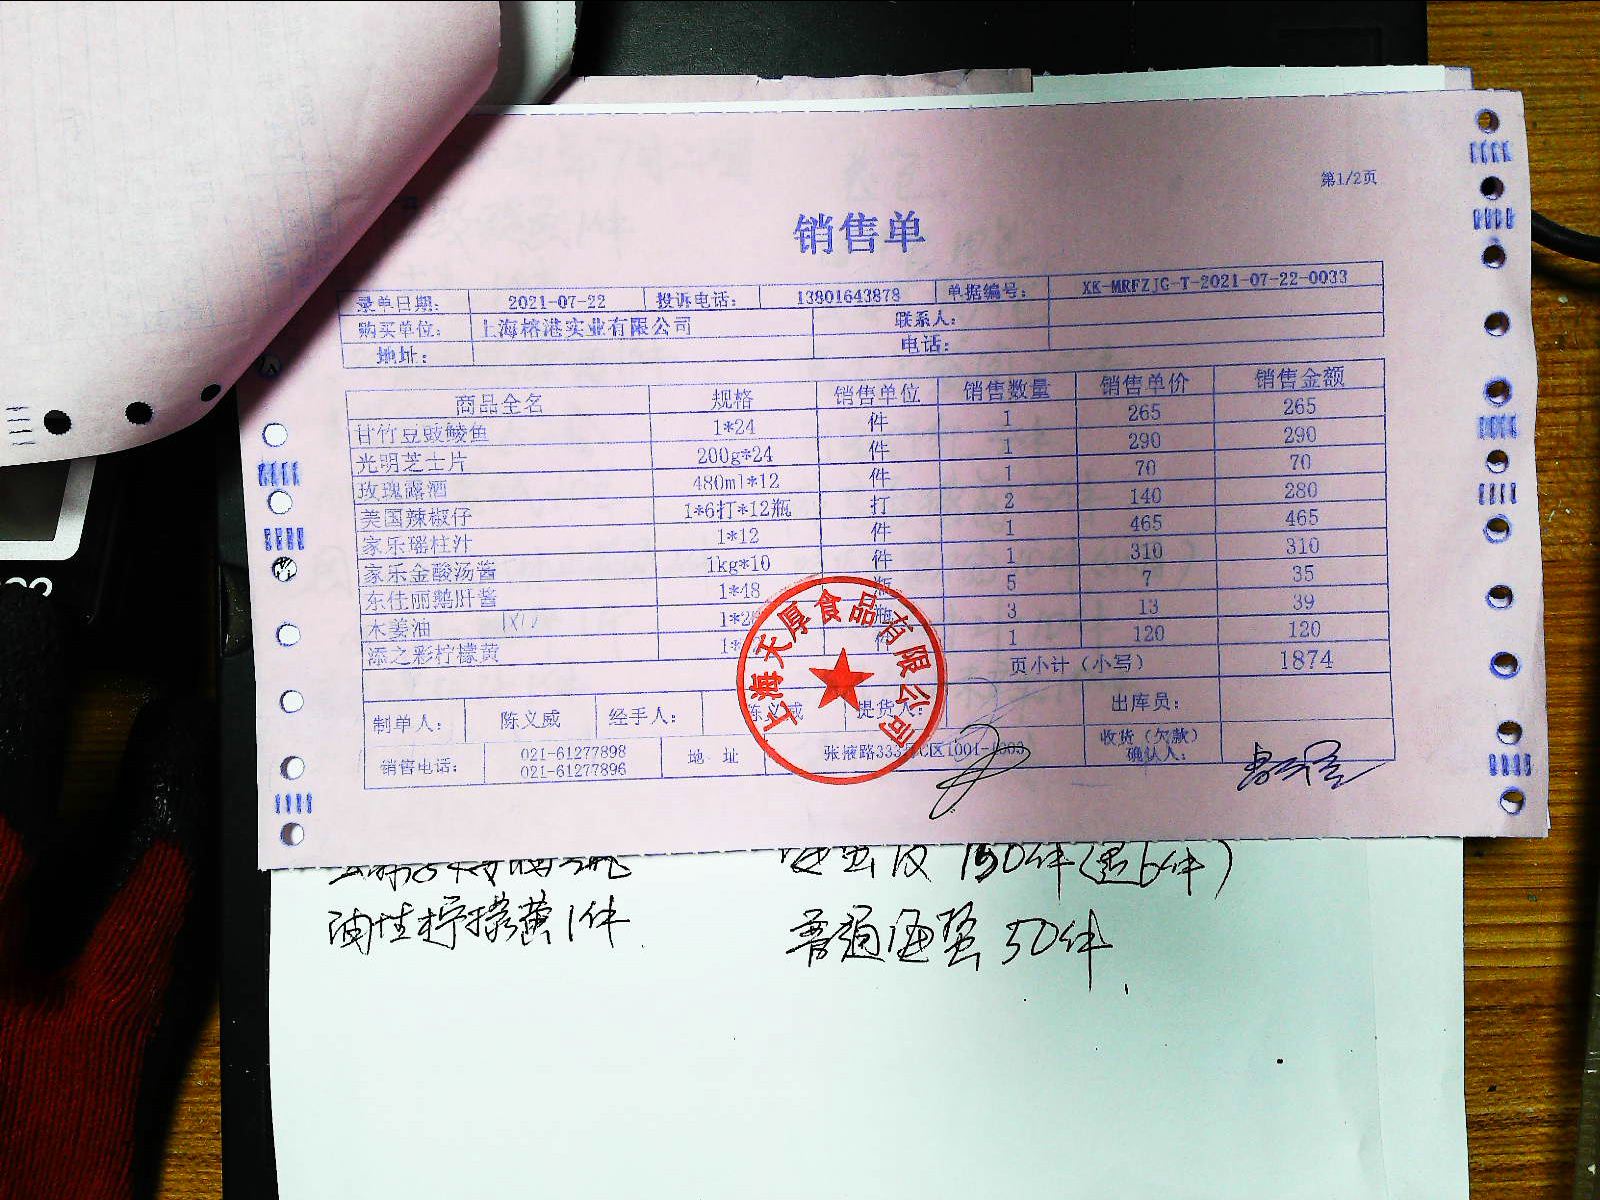 第1/2页
销售单
录单日期: 2021-07-22 投诉电话: 13801643878 单据编号: XK-MRFZJG-T-2021-07-22-0033
购买单位: 上海榕港实业有限公司 联系人:
地址: 电话:
商品全名 规格 销售单位 销售数量 销售单价 销售金额
甘竹豆豉鲮鱼 1*24 件 1 265 265
光明芝士片 200g*24 件 1 290 290
玫瑰露酒 480ml*12 件 1 70 70
美国辣椒仔 1*6打*12瓶 打 2 140 280
家乐瑶柱汁 1*12 件 1 465 465
家乐金酸汤酱 1kg*10 件 1 310 310
东佳丽鹅肝酱 1*48 瓶 5 7 35
木姜油 瓶 3 13 39
添之彩柠檬黄 件 1 120 120
页小计（小写） 1874
制单人: 陈义威 经手人: 陈义威 提货人: 出库员:
销售电话: 021-61277898 021-61277896 地 址 张掖路333号C区1001-1003 收货（欠款）确认人:
上海天厚食品有限公司
150件(遇6件)
油性柠檬黄1件
普通海蜇50件